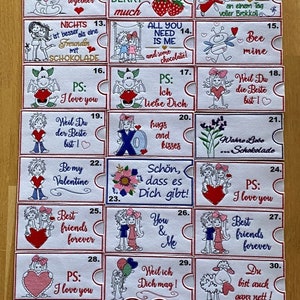 together
BERRY
much
an einem Tag
voller Brokkoli
13.
NIGHTS
ist besser als eine
Freundin
mit
SCHOKOLADE
14.
ALL YOU
NEED IS ME
and some chocolate!
15.
Bee
mine
16.
PS:
I love you
17.
PS:
Ich
liebe Dich
18.
PS:
I love you
19.
Weil Du
der Beste
bist!
20.
hugs
and
kisses
21.
Wahre Liebe
...Schokolade
22.
Be my
Valentine
23.
Schön,
dass es
Dich gibt!
24.
PS:
I love you
25.
Best
friends
forever
26.
You
&
Me
27.
Best
friends
forever
28.
PS:
I love you
29.
Weil ich
Dich mag!
30.
Du
bist auch